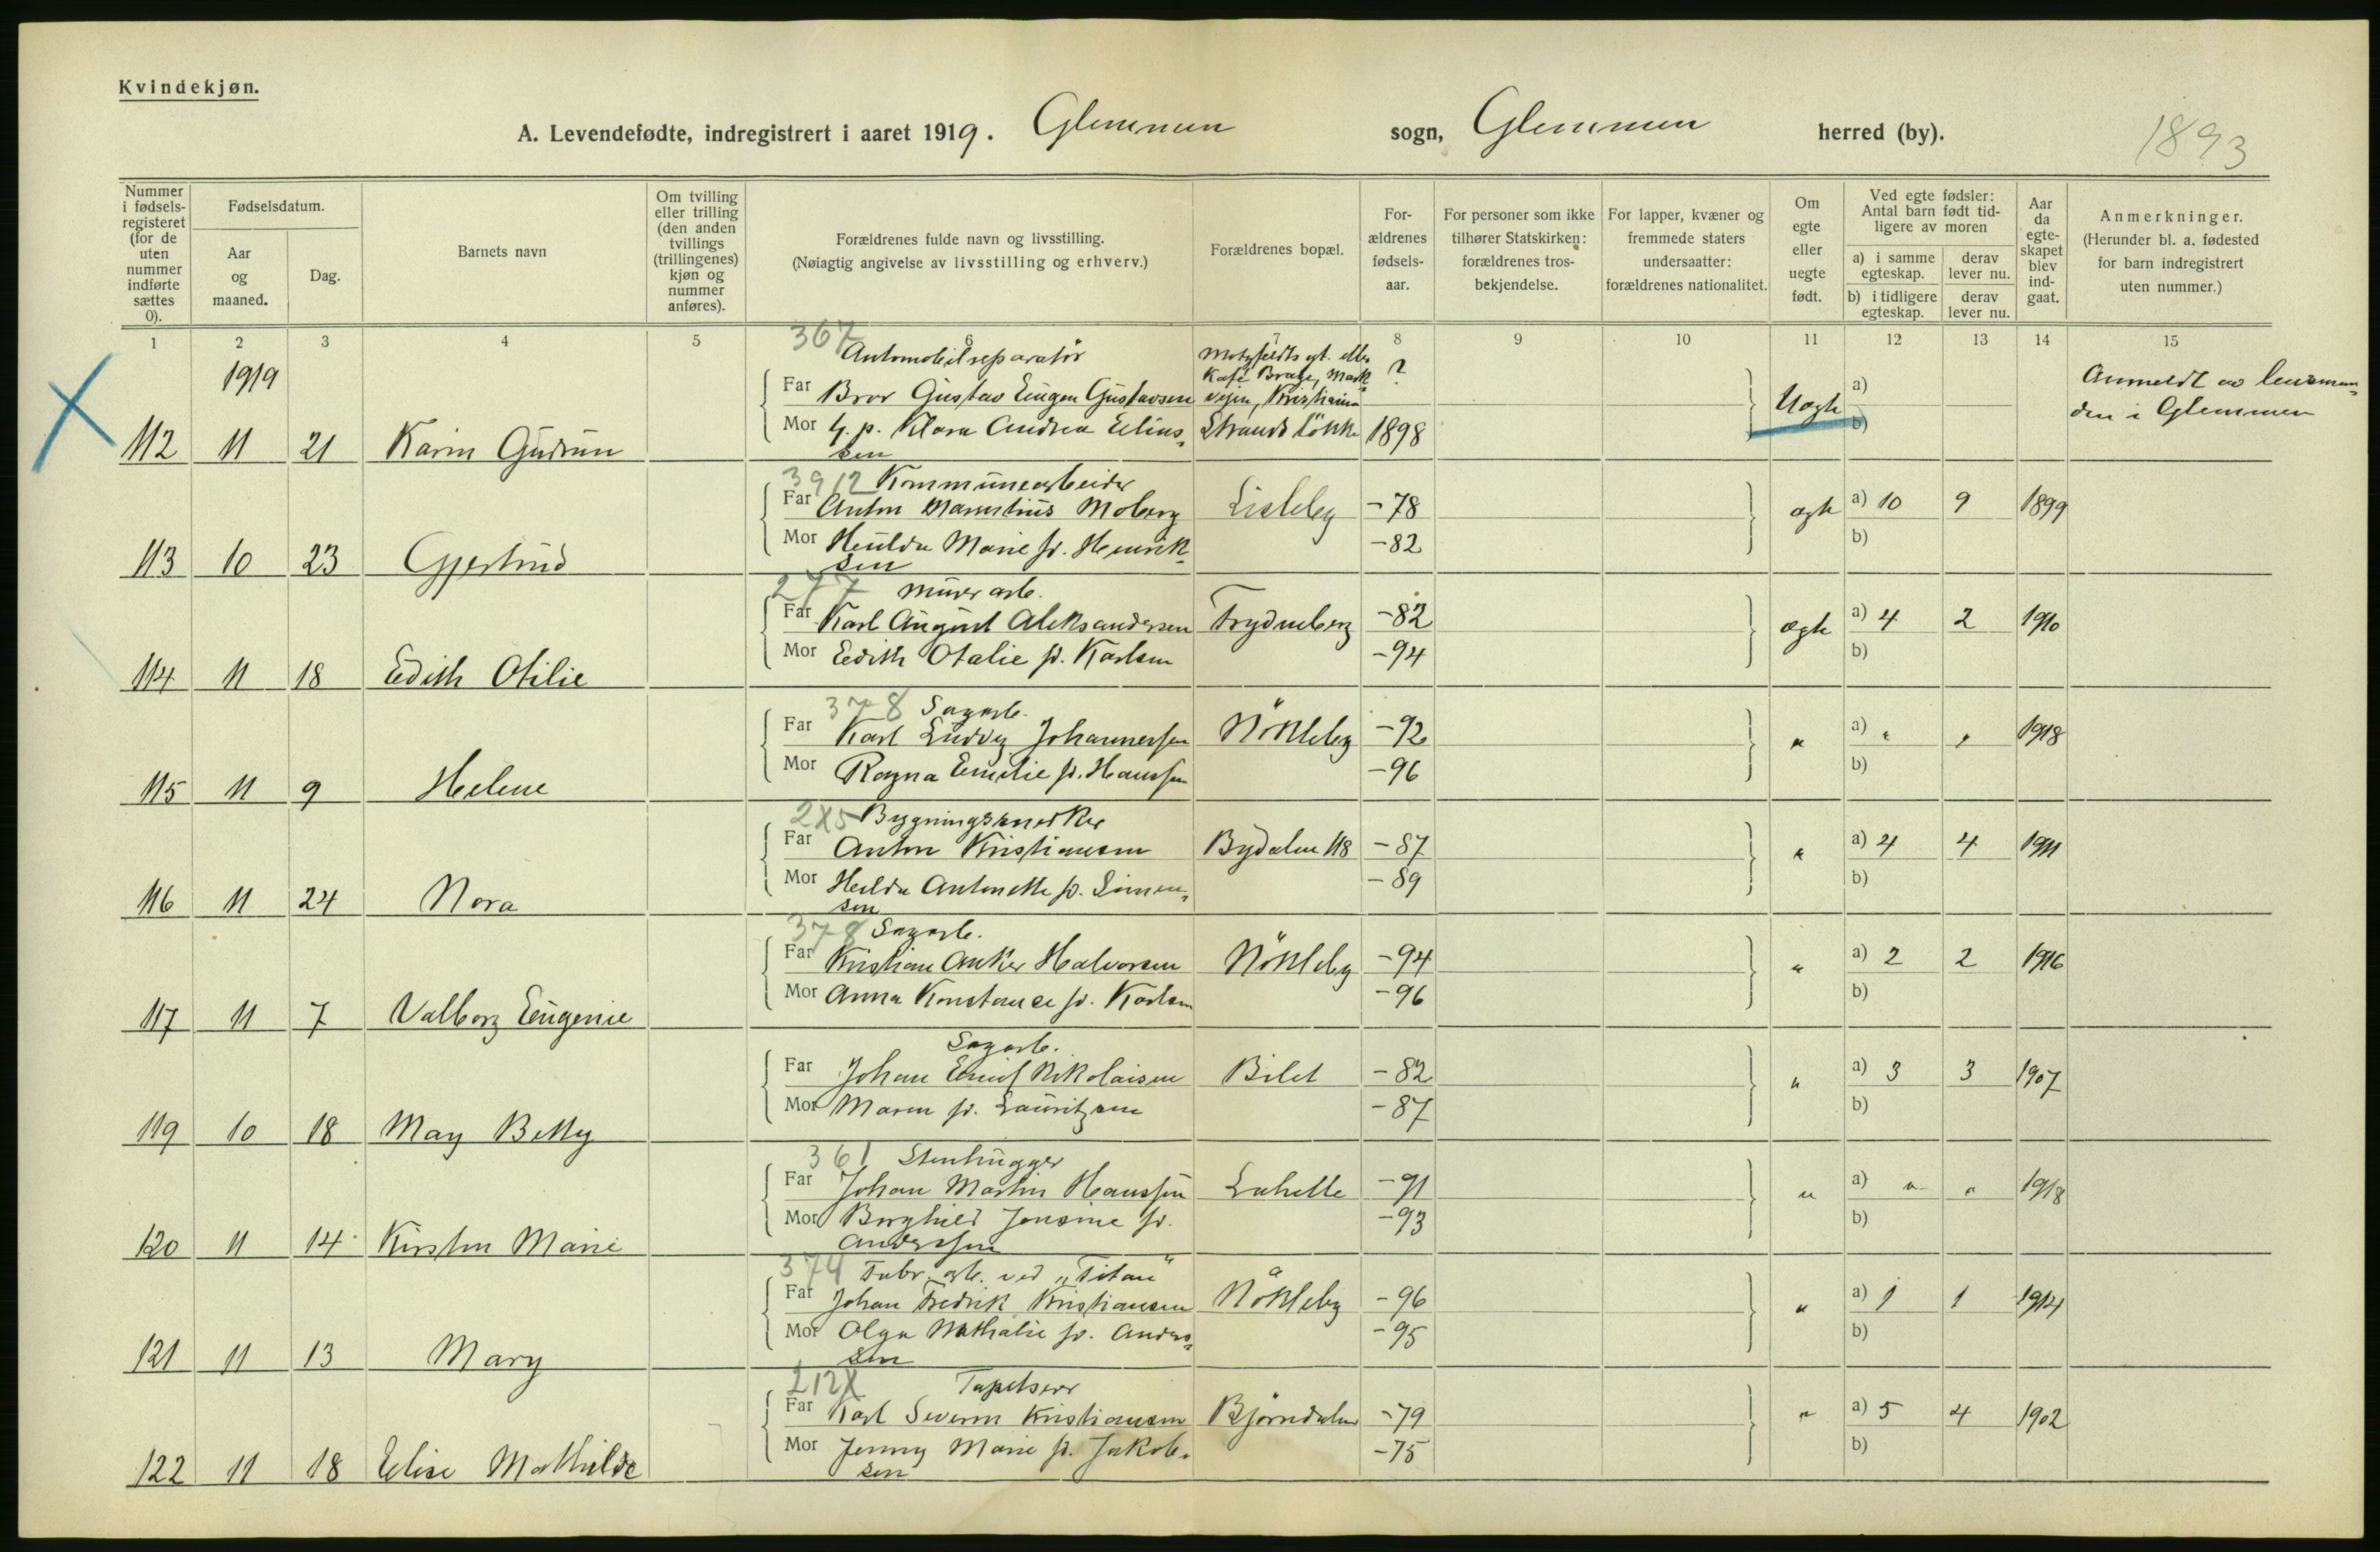 Kvindekjøn.
A. Levendefødte, indregistrert i aaret 1919. Glemmen sogn, Glemmen herred (by). 1893
Nummer i fødselsregisteret (for de uten nummer indførte sættes 0).
Fødselsdatum.
Aar og maaned.
Dag.
Barnets navn
Om tvilling eller trilling (den anden tvillings (trillingenes) kjøn og nummer anføres).
Forældrenes fulde navn og livsstilling.
(Nøiagtig angivelse av livsstilling og erhverv.)
Forældrenes bopæl.
Forældrenes fødselsaar.
For personer som ikke tilhører Statskirken: forældrenes trosbekjendelse.
For lapper, kvæner og fremmede staters undersaatter: forældrenes nationalitet.
Om egte eller uegte født.
Ved egte fødsler: Antal barn født tidligere av moren
a) i samme egteskap. derav lever nu.
b) i tidligere egteskap. derav lever nu.
Aar da egteskapet blev indgaat.
Anmerkninger.
(Herunder bl. a. fødested for barn indregistrert uten nummer.)
1 2 3 4 5 6 7 8 9 10 11 12 13 14 15
1919
367 Automobilreparatör
Far Bror Gustav Eugen Gustavsen Motzfeldts gt. eller Kafé Brage, Markvejen, Kristiania ?
Mor G. p. Klara Andrea Eliassen Strands Løkke 1898
112 11 21 Karin Gudrun Uegte a) b) Anmeldt av lensmanden i Glemmen
3912 Kommunearbeider
Far Anton Marentius Moberg Lisleby -78 egte a) 10 9 1899
Mor Hulda Marie f. Henriksen -82 b)
113 10 23 Gjertrud
277 Murerarb.
Far Karl August Aleksandersen Frydenberg -82 egte a) 4 2 1910
Mor Edith Otalie f. Karlsen -94 b)
114 11 18 Edith Otilie
378 Sagarb.
Far Karl Ludvig Johannessen Nökleby -92 " a) " " 1918
Mor Ragna Emilie f. Hanssen -96 b)
115 11 9 Helene
2X5 Bygningssnedker
Far Anton Kristiansen Bydalen 118 -87 " a) 4 4 1911
Mor Hulda Antonette f. Simensen -89 b)
116 11 24 Nora
378 Sagarb.
Far Kristian Anker Halvorsen Nökleby -94 " a) 2 2 1916
Mor Anna Konstance f. Karlsen -96 b)
117 11 7 Valborg Eugenie
Sagarb.
Far Johan Emil Nikolaisen Bilet -82 " a) 3 3 1907
Mor Maren f. Lauritzen -87 b)
119 10 18 May Betty
361 Stenhugger
Far Johan Martin Hanssen Lahelle -91 " a) " " 1918
Mor Borghild Jensine f. Anderssen -93 b)
120 11 14 Kirsten Marie
374 Fabr. arb. ved "Titan"
Far Johan Fredrik Kristiansen Nökleby -96 " a) 1 1 1914
Mor Olga Mathalie f. Anderssen -95 b)
121 11 13 Mary
212X Tapetserer
Far Karl Severin Kristiansen Björndalen -79 " a) 5 4 1902
Mor Jenny Marie f. Jakobsen -75 b)
122 11 18 Elise Mathilde